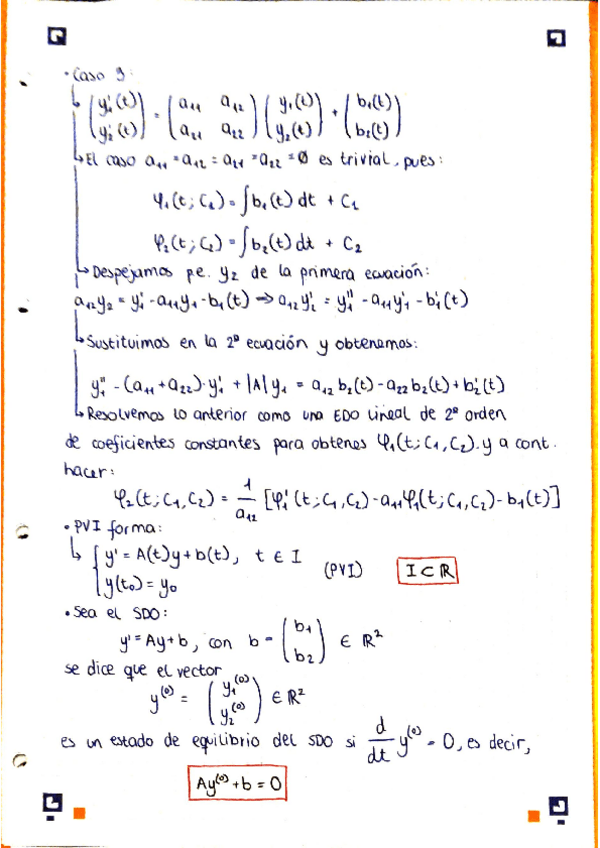 • Caso 3:
↳ (y₁'(t) y₂'(t)) = (a₁₁ a₁₂ a₂₁ a₂₂) (y₁(t) y₂(t)) + (b₁(t) b₂(t))
↳ El caso a₁₁ = a₁₂ = a₂₁ = a₂₂ = 0 es trivial, pues:
φ₁(t; C₁) = ∫b₁(t) dt + C₁
φ₂(t; C₂) = ∫b₂(t) dt + C₂
↳ Despejamos p.e. y₂ de la primera ecuación:
a₁₂y₂ = y₁' - a₁₁y₁ - b₁(t) ⇒ a₁₂y₂' = y₁'' - a₁₁y₁' - b₁'(t)
↳ Sustituimos en la 2ª ecuación y obtenemos:
y₁'' - (a₁₁ + a₂₂)·y₁' + |A|y₁ = a₁₂b₂(t) - a₂₂b₂(t) + b₂'(t)
↳ Resolvemos lo anterior como una EDO lineal de 2º orden
de coeficientes constantes para obtenes φ₁(t; C₁, C₂). y a cont.
hacer:
φ₂(t; C₁, C₂) = 1/a₁₂ [φ₁'(t; C₁, C₂) - a₁₁φ₁(t; C₁, C₂) - b₁(t)]
• PVI forma:
↳ { y' = A(t)y + b(t), t ∈ I
y(t₀) = y₀ (PVI) I ⊂ ℝ
• Sea el SDO:
y' = Ay + b, con b = (b₁ b₂) ∈ ℝ²
se dice que el vector
y⁽⁰⁾ = (y₁⁽⁰⁾ y₂⁽⁰⁾) ∈ ℝ²
es un estado de equilibrio del SDO si d/dt y⁽⁰⁾ = 0, es decir,
Ay⁽⁰⁾ + b = 0